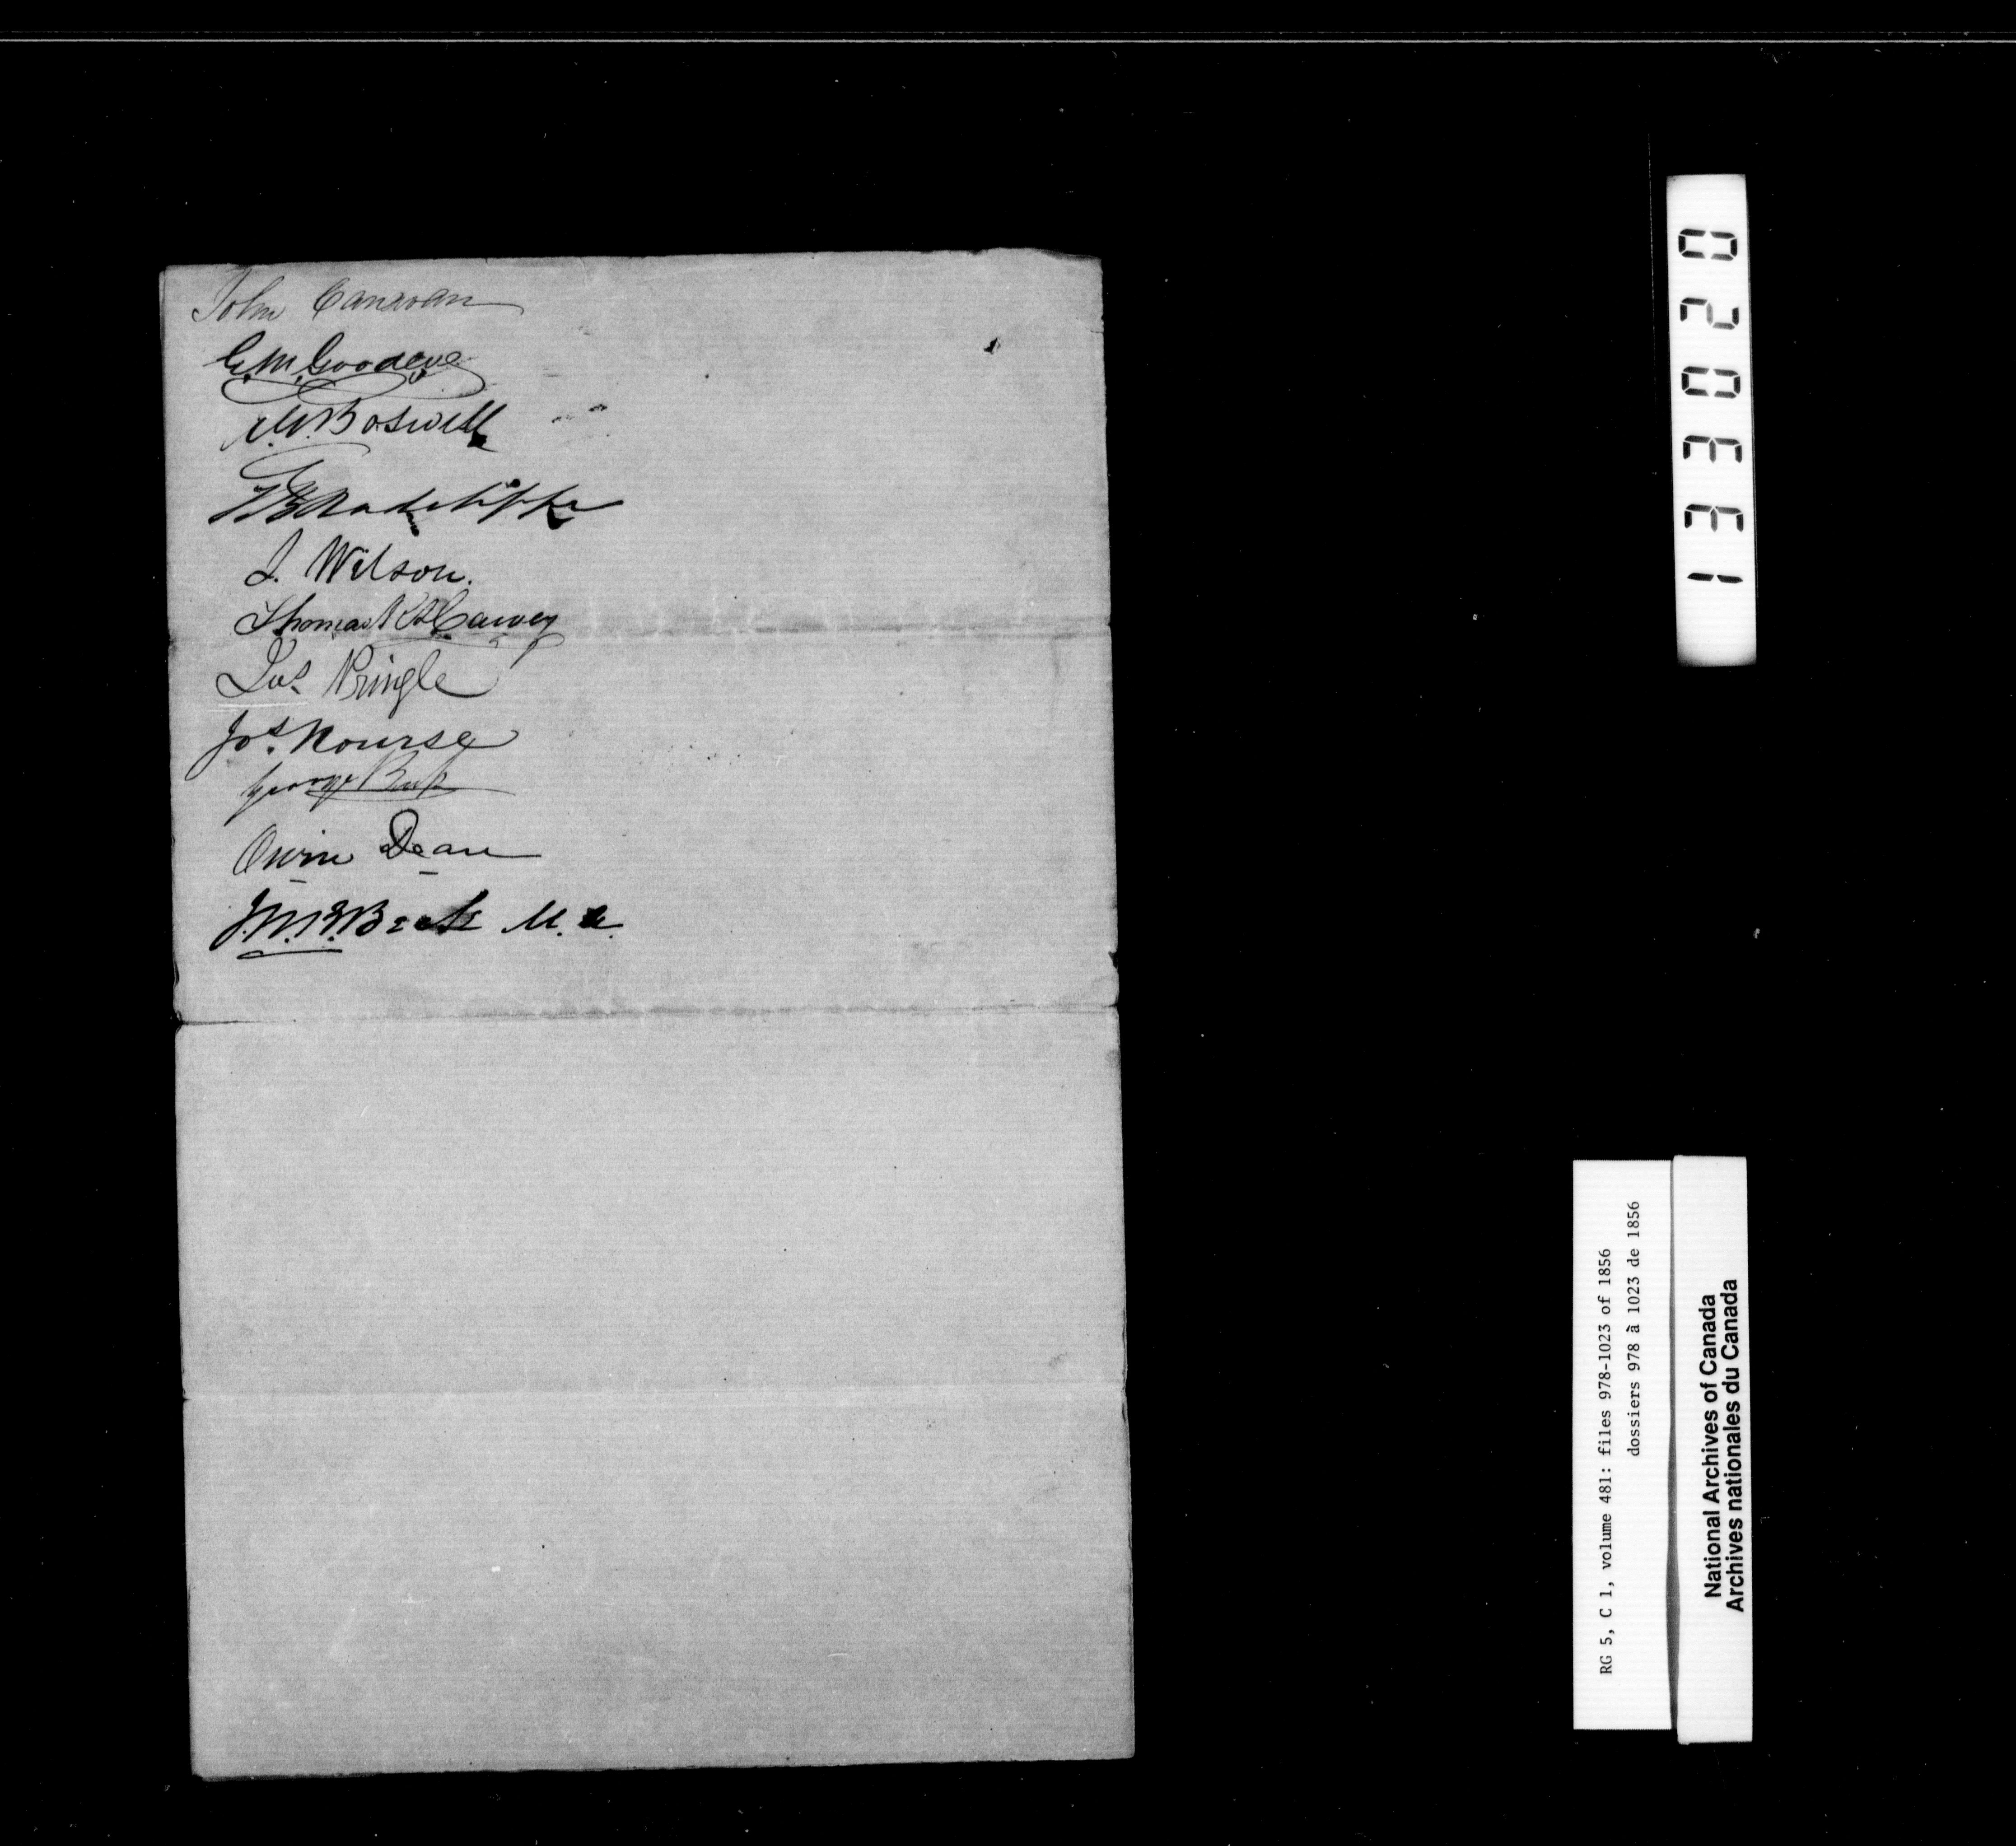 John Canavan
G. M. Goodeve
A. W. Boswell
Radcliffe
J. Wilson.
Thomas Carvey
Jas Pringle
Jos. Nourse
George
Owin Dean
Beck M.
020331
RG 5, C 1, volume 481: files 978-1023 of 1856
dossiers 978 à 1023 de 1856
National Archives of Canada
Archives nationales du Canada